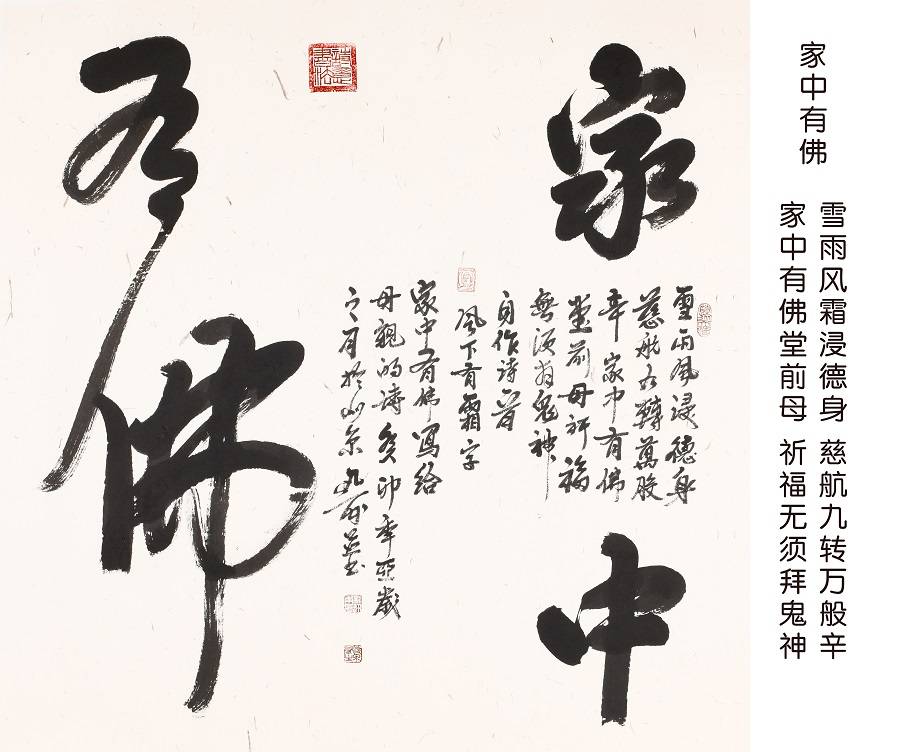 家中有佛
雪雨风霜浸德身 慈航九转万般辛
家中有佛堂前母 祈福无须拜鬼神
家中
有佛
雪雨风浸德身
慈航九轉萬般
辛家中有佛
堂前母祈福
無须拜鬼神
自作诗一首
风下有霜字
家中有佛写给
母親的诗癸卯年亞歲
之月於北京